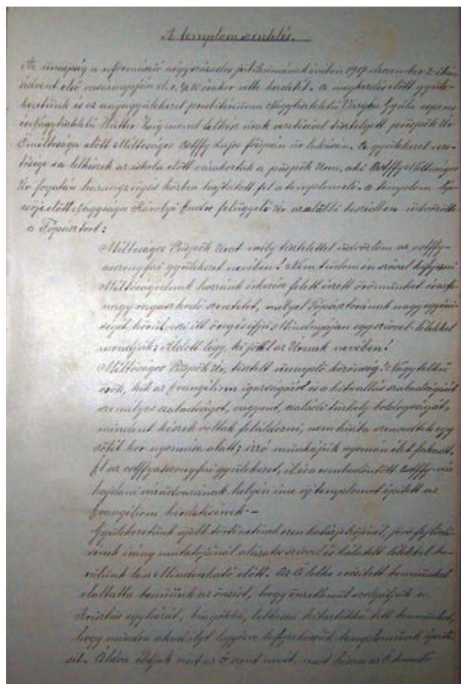 A templomszentelés.
Az ünnepség a reformáció négyszázados jubileumának évében 1917. december 2-ikán
ádvent első vasárnapján d.e. ½10 órakor vette kezdetét. A megkezdés előtt gyüle-
kezetünk is az anyagyülekezet presbitériuma Nagytiszteletű Varga Gyula esperes
és Nagytiszteletű Hütter Zsigmond lelkész urak vezetésével tisztelgett püspök Úr
Őméltósága előtt Méltóságos Ostffy Lajos főispán úr lakásán. A gyülekezet
a lelkészek az iskola előtt várakoztak a püspök Úrra, aki Ostffy Méltóságos
Úr fogatán harangzúgás közben hajtatott fel a templomhoz. A templom
előtt Nagyságos Károlyi Endre felügyelő Úr az alábbi beszédben üdvözölte
a Főpásztort:
Méltóságos Püspök Urat mély tisztelettel üdvözlöm az ostffy-
asszonyfai gyülekezet nevében! Nem tudom én szóval kifejezni
Méltóságodnak hozzánk érkezése felett érzett örömünket és azt
nagy ragaszkodó szeretetet, mellyel Főpásztorának nagy egyéni-
ségét körülveszi itt öregje ifja. Mindnyájan egy szívvel-lélekkel
mondják: Áldott légy, ki jöttél az Úrnak nevében!
Méltóságos Püspök Úr, tisztelt ünneplő közönség! Nagy lelkű
ősök, kik az Evangéliom igazságáért és a hitvallás szabadságáért
személyes szabadságot, vagyont, családi tűzhely boldogságát,
mindent készek voltak feláldozni, nem hiába szenvedtek egy
sötét kor nyomása alatt; író munkájuk nyomán élet fakadt.
Él az ostffyasszonyfai gyülekezet, él és a rombadöntött Ostffy-vár
hajdani várudvarának helyén íme új templomot épített az
Evangéliom hirdetésének.-
Gyülekezetünk újabb történetének ezen határjelzőjénél, jövő fejlődé-
sének irány mutatójánál alázatos szívvel és hálatelt lélekkel bo-
rulunk le a Mindenható előtt. Az Ő lelke erősített bennünket
oltatta bennünk az érzést, hogy önzetlenül szolgáljuk a
Krisztus egyházát, buzgókká, lelkesen kitartókká tett bennünket,
hogy minden akadályt legyőzve befejezhessük templomunk építé-
sét. Áldva áldjuk mi az Ő szent nevét, mert hiszen az Ő